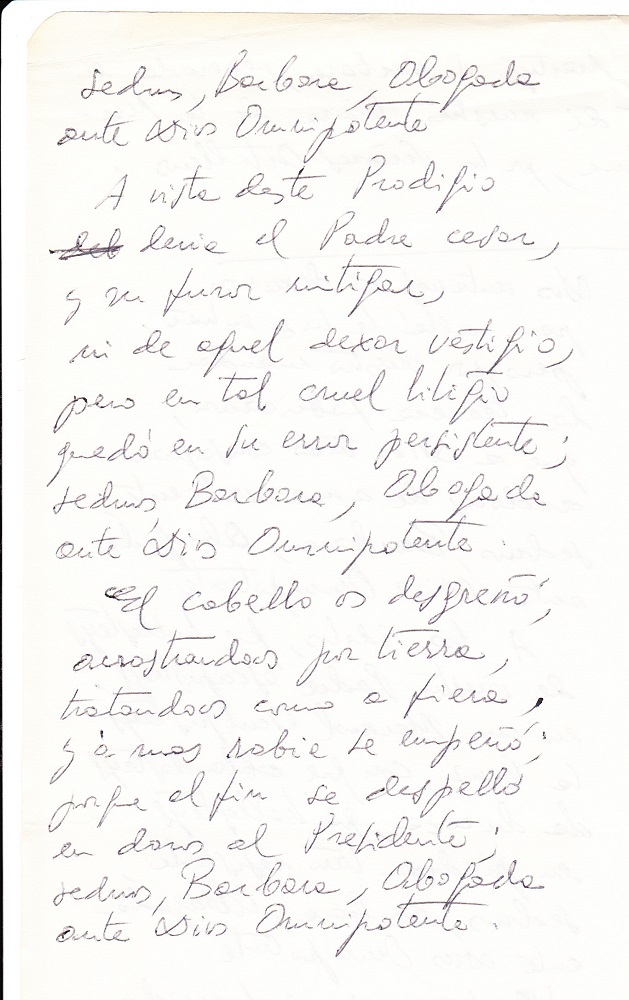 sednos, Barbara, Abogada
ante Dios Omnipotente
A vista deste Prodigio
devia el Padre cesar,
y su furor mitigar,
ni de aquel dexar vestigio,
pero en tal cruel litigio
quedó en su error persistente;
sednos, Barbara, Abogada
ante Dios Omnipotente.
El cabello os desgreñó,
arrostrandoos por tierra,
tratandoos como a fiera,
y à mas rabia se empeñó;
porque al fin se despelló
en daros al Presidente;
sednos, Barbara, Abogada
ante Dios Omnipotente.